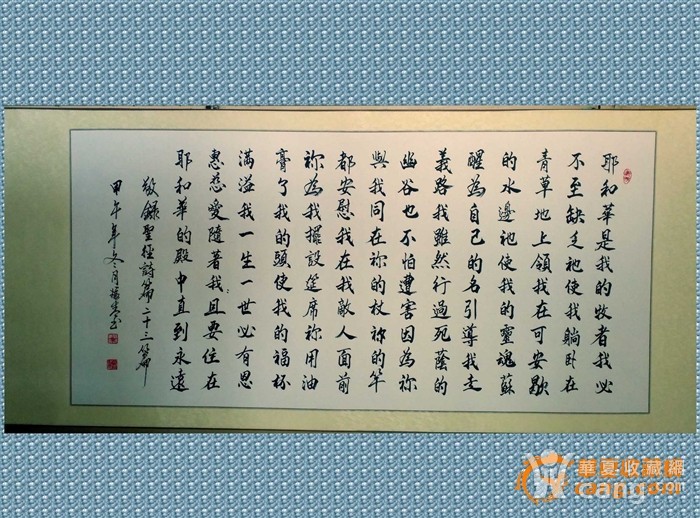 耶和華是我的牧者我必
不至缺乏祂使我躺卧在
青草地上領我在可安歇
的水邊祂使我的靈魂蘇
醒為自己的名引導我走
義路我雖然行過死蔭的
幽谷也不怕遭害因為祢
與我同在祢的杖祢的竿
都安慰我在我敵人面前
祢為我擺設筵席祢用油
膏了我的頭使我的福杯
滿溢我一生一世必有恩
惠慈愛隨著我且要住在
耶和華的殿中直到永遠
敬錄聖經詩篇二十三篇
甲午年冬月
華夏收藏網